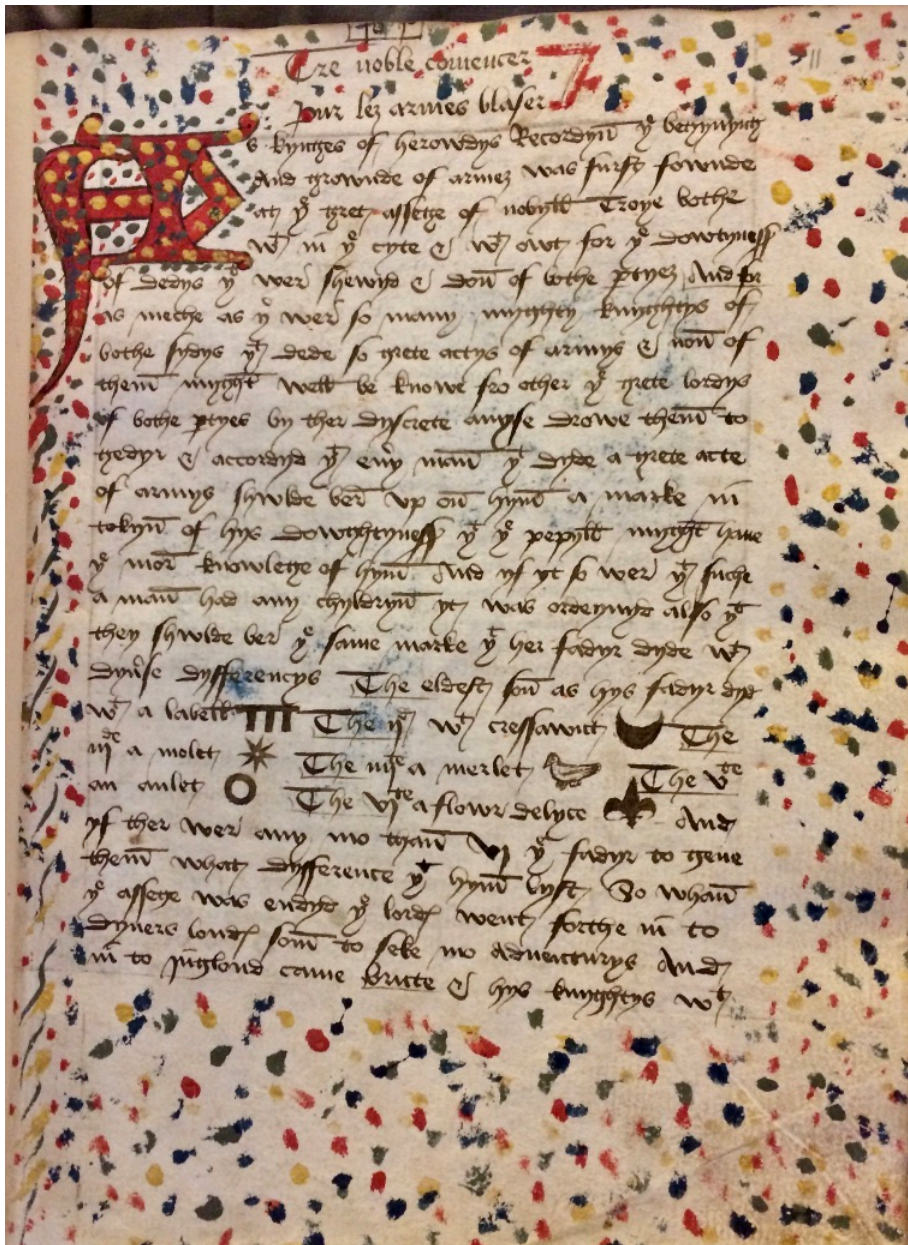 Tre noble comencer
pour lez armes blaser
As kynges of herowdys Recordyn̄ yᵉ begynnyng
And grownde of armez was furst fownde
at yᵉ gret assege of nobyll Troye bothe
wᵗ in yᵉ cyte & wᵗ owt for yᵉ dowtyness
of dedys yᵗ wer shewyd & don̄ of bothe ptyez And for
as meche as yʳ wer so many myghty knyghtys of
bothe sydys yᵗ dede so grete actys of armys & non̄ of
them̄ myght well be knowe fro other yᵉ grete lordys
of bothe ptyes by ther dyscrete auyse drowe them̄ to
gedyr & accordyd yᵗ eny man̄ yᵗ dyde a grete acte
of armys shwlde ber vp on̄ hym̄ a marke in
tokyn̄ of hys dowghtyness yᵗ yᵉ pepyll myght haue
yᵉ mor knowlege of hym̄ And yf yt so wer yᵗ suche
a man̄ had any chyldryn̄ yt was ordeynyd also yᵗ
they shwlde ber yᵉ same marke yᵗ her fadyr dyde wᵗ
dyuse dyfferencys The eldest son̄ as hys fadyr dyd
wᵗ a labell The ijᵉ wᵗ cressawnt The
iijᵈᵉ a molet The iiijᵗᵉ a merlet The vᵗᵉ
an anlet The vjᵗᵉ a flowr delyce And
yf ther wer any mo than̄ vj yᵉ fadyr to geue
them̄ what dyfference yᵗ hym̄ lyst So whan̄
yᵉ assege was endyd yᵉ lordes went forthe in to
dyuers londes som̄ to seke mo aduenturys And
in to jnglond came bructe & hys knyghtys wᵗ